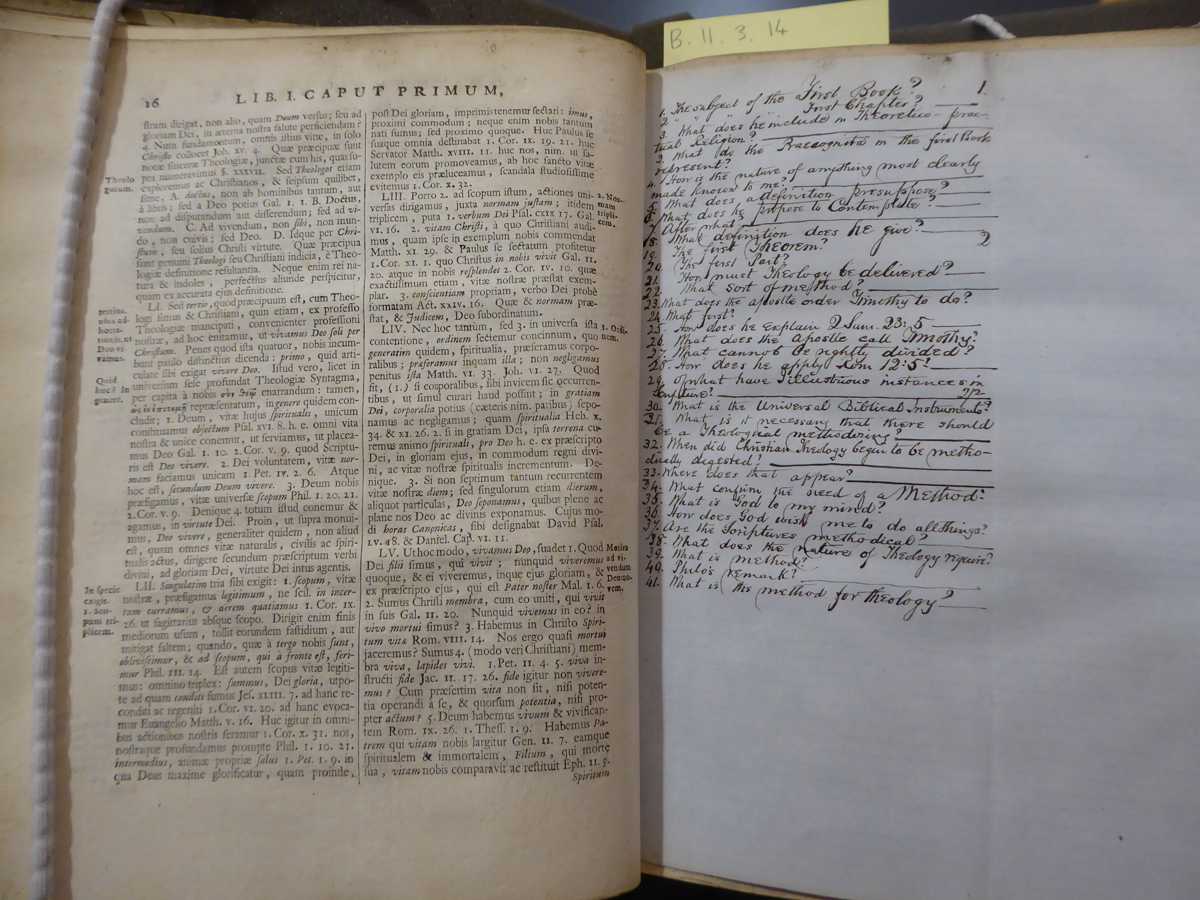 B. 11. 3. 14
16 LIB. I. CAPUT PRIMUM,
stram dirigat, non alio, quam Deum versus; seu ad
gloriam Dei, in æterna nostra salute perficiendam?
4. Num fundamentum, omnis istius vitæ, in solo
Christo collocet Joh. XV. 4. Quæ præcipuæ sunt
notæ sinceræ Theologiæ, junctæ cum his, quas su-
per numeravimus §. XXXVII. Sed Theologos etiam
exploremus ac Christianos, & seipsum quilibet,
sitne, A. doctus, non ab hominibus tantum, aut
à libris; sed a Deo potius Gal. I. 1. B. Doctus,
non ad disputandum aut differendum; sed ad vi-
vendum. C. Ad vivendum, non sibi, non mun-
do, non cuivis; sed Deo. D. Idque per Chri-
stum, seu solius Christi virtute. Quæ præcipua
sunt genuini Theologi seu Christiani indicia, è Theo-
logiæ definitione resultantia. Neque enim rei na-
tura & indoles, perfectius aliunde perspicitur,
quam ex accurata ejus definitione.
LI. Sed tertio, quod præcipuum est, cum Theo-
logi simus & Christiani, quin etiam, ex professo
Theologiæ mancipati, convenienter professioni
nostræ, ad hoc enitamur, ut vivamus Deo soli per
Christum. Penes quod ista quatuor, nobis incum-
bunt paulo distinctius dicenda: primo, quid arti-
culate sibi exigat vivere Deo. Istud vero, licet in
universum sese profundat Theologiæ Syntagma,
per capita à nobis σὺν Θεῷ enarrandum: tamen,
repræsentatum, in genere quidem con-
cludit; 1. Deum, vitæ hujus spiritualis, unicum
continuumque objectum Psal. XVI. 8. h. e. omni vita
nostra & unice conemur, ut serviamus, ut placea-
mus Deo Gal. I. 10. 2 Cor. V. 9. quod Scriptu-
ris est Deo vivere. 2. Dei voluntatem, vitæ nor-
mam faciamus unicam 1 Pet. IV. 2. 6. Atque
hoc est, secundum Deum vivere. 3. Deum nobis
præfigamus, vitæ universæ scopum Phil. I. 20. 21.
2. Cor. V. 9. Denique 4. totum istud conemur &
agamus, in virtute Dei. Proin, ut supra monui-
mus, Deo vivere, generaliter quidem, non aliud
est, quam omnes vitæ naturalis, civilis ac spiri-
tualis actus, dirigere secundum præscriptum verbi
divini, ad gloriam Dei, virtute Dei intus agentis.
LII. Singulatim tria sibi exigit: 1. scopum, vitæ
nostræ, præfigamus legitimum, ne scil. in incer-
tum curramus, & aerem quatiamus 1 Cor. IX.
26. ut sagittarius absque scopo. Dirigit enim finis
mediorum usum, tollit eorundem fastidium, aut
mitigat saltem; quando, quæ à tergo nobis sunt,
obliviscimur, & ad scopum, qui à fronte est, feri-
mur Phil. III. 14. Est autem scopus vitæ legiti-
mus: omnino triplex: summus, Dei gloria, utpo-
te ad quam conditi sumus Jes. XLIII. 7. ad hanc re-
conditi ac regeniti 1 Cor. VI. 20. ad hanc evoca-
mur Euangelio Matth. V. 16. Huc igitur in omni-
bus actionibus nostris feramur 1 Cor. X. 31. nos,
nostraque profundamus prompte Phil. I. 10. 21.
intermedius, animæ propriæ salus 1. Pet. I. 9. in
qua Deus maxime glorificatur, quam proinde,
Theolo
gorum.
Quid
hoc? In
genere.
In specie
exigit.
1. Sco-
pum tri-
plicem.
post Dei gloriam, imprimis tenemur sectari: imus,
proximi commodum; neque enim nobis tantum
nati sumus; sed proximo quoque. Huc Paulus se
susque omnia desudabat 1. Cor. IX. 19. 21. huc
Servator Matth. XVIII. 11. huc nos, num. ut sa-
lutem eorum promoveamus, ab hoc sancto vitæ
exemplo eis præluceamus, scandala studiosissime
evitemus 1 Cor. X. 32.
LIII. Porro 2. ad scopum istum, actiones uni-
versas dirigamus, juxta normam justam; itidem
triplicem, puta 1. verbum Dei Psal. CXIX 17. Gal
VI. 16. 2. vitam Christi, à quo Christiani audi-
mus, quam ipse in exemplum nobis commendat
Matth. XI. 29. & Paulus se sectatum profitetur
1. Cor. XI. 1. quo Christus in nobis vivit Gal. II.
20. atque in nobis resplendet 2 Cor. IV. 10. quæ
exactissimum etiam, vitæ nostræ præstat exem-
plar. 3. conscientiam propriam, verbo Dei probè
formatam Act. XXIV. 16. Quæ & normam præ-
stat, & Judicem, Deo subordinatum.
LIV. Nec hoc tantum, sed 3. in universa ista
contentione, ordinem sectemur concinnum, quo
generatim quidem, spiritualia, præferamus corpo-
ralibus; præferamus inquam illa; non negligamus
penitus ista Matth. VI. 33. Joh. VI. 27. Quod
fit, (1.) si corporalibus, sibi invicem sic occurren-
tibus, ut simul curari haud possint; in gratiam
Dei, corporalia potius (cæteris nim. paribus) sepo-
namus ac negligamus; quam spiritualia Heb. X.
34. & XI. 26. 2. si in gratiam Dei, ipsa terrena cu-
remus animo spirituali, pro Deo h. e. ex præscripto
Dei, in gloriam ejus, in commodum regni divi-
ni, ac vitæ nostræ spiritualis incrementum. De-
nique. 3. Si non septimum tantum recurrentem
vitæ nostræ diem; sed singulorum etiam dierum,
aliquot particulas, Deo seponamus, quibus plene ac
plane nos Deo ac divinis exponamus. Cujus mo-
di horas Canonicas, sibi designabat David Psal.
LV. 48. & Daniel. Cap. VI. 11.
LV. Ut hoc modo, vivamus Deo, suadet 1. Quod
Dei filii simus, qui vivit; nunquid viveremus
quoque, & ei viveremus, inque ejus gloriam, &
ex præscripto ejus, qui est Pater noster Mal. I. 6.
2. Sumus Christi membra, cum eo uniti, qui vivit
in suis Gal. II. 20. Nunquid vivemus in eo? in
vivo mortui simus? 3. Habemus in Christo Spiri-
tum vitæ Rom. VIII. 14. Nos ergo quasi mortui
jaceremus? Sumus 4. (modo veri Christiani) mem-
bra viva, lapides vivi. 1. Pet. II. 4. 5. viva in-
structi fide Jac. II. 17. 26. fide igitur non vivere-
mus? Cum præsertim vita non sit, nisi poten-
tia operandi à se, & quorsum potentia, nisi pro-
pter actum? 5. Deum habemus vivum & vivifican-
tem Rom. IX. 26. 1. Thess. I. 9. Habemus Pa-
trem qui vitam nobis largitur Gen. II. 7. eamque
spiritualem & immortalem, Filium, qui morte
sua, vitam nobis comparavit ac restituit Eph. II. 5.
Spiritum
2. Nor-
mam
tripli-
cem.
Motiva
ad vi-
vendum
Deo no-
vem.
1.
1. The subject of the First Book?
2. " " " First Chapter?
3. What does he include in Theoretico-prac-
tical Religion?
3. What do the Praecognita in the first Book
represent?
4. How is the nature of anything most clearly
made known to me?
5. What does a definition presuppose?
6. What does he propose to Contemplate?
7. After what
18. What definition does he give?
19. The first Theorem? 2
20. The first Part?
21. How must Theology be delivered?
22. What Sort of method?
23. What does the apostle order Timothy to do?
24. What first?
25. How does he explain 2 Sam. 23:5
26. What does the Apostle call Timothy?
27. What cannot be rightly divided?
28. How does he apply Rom 12:5?
29. Of what have Illustrious instances in
Scripture? 2/2
30. What is the Universal Biblical Instrument?
31. What is it necessary that there should
be a Theological methodizing?
32. When did Christian Theology begin to be metho-
dically digested?
33. Where does that appear?
34. What confirm the need of a Method?
35. What is God to my mind?
36. How does God wish me to do all things?
37. Are the Scriptures methodical?
38. What does the nature of Theology require?
39. What is method?
40. Philo's remark?
41. What is the method for theology?